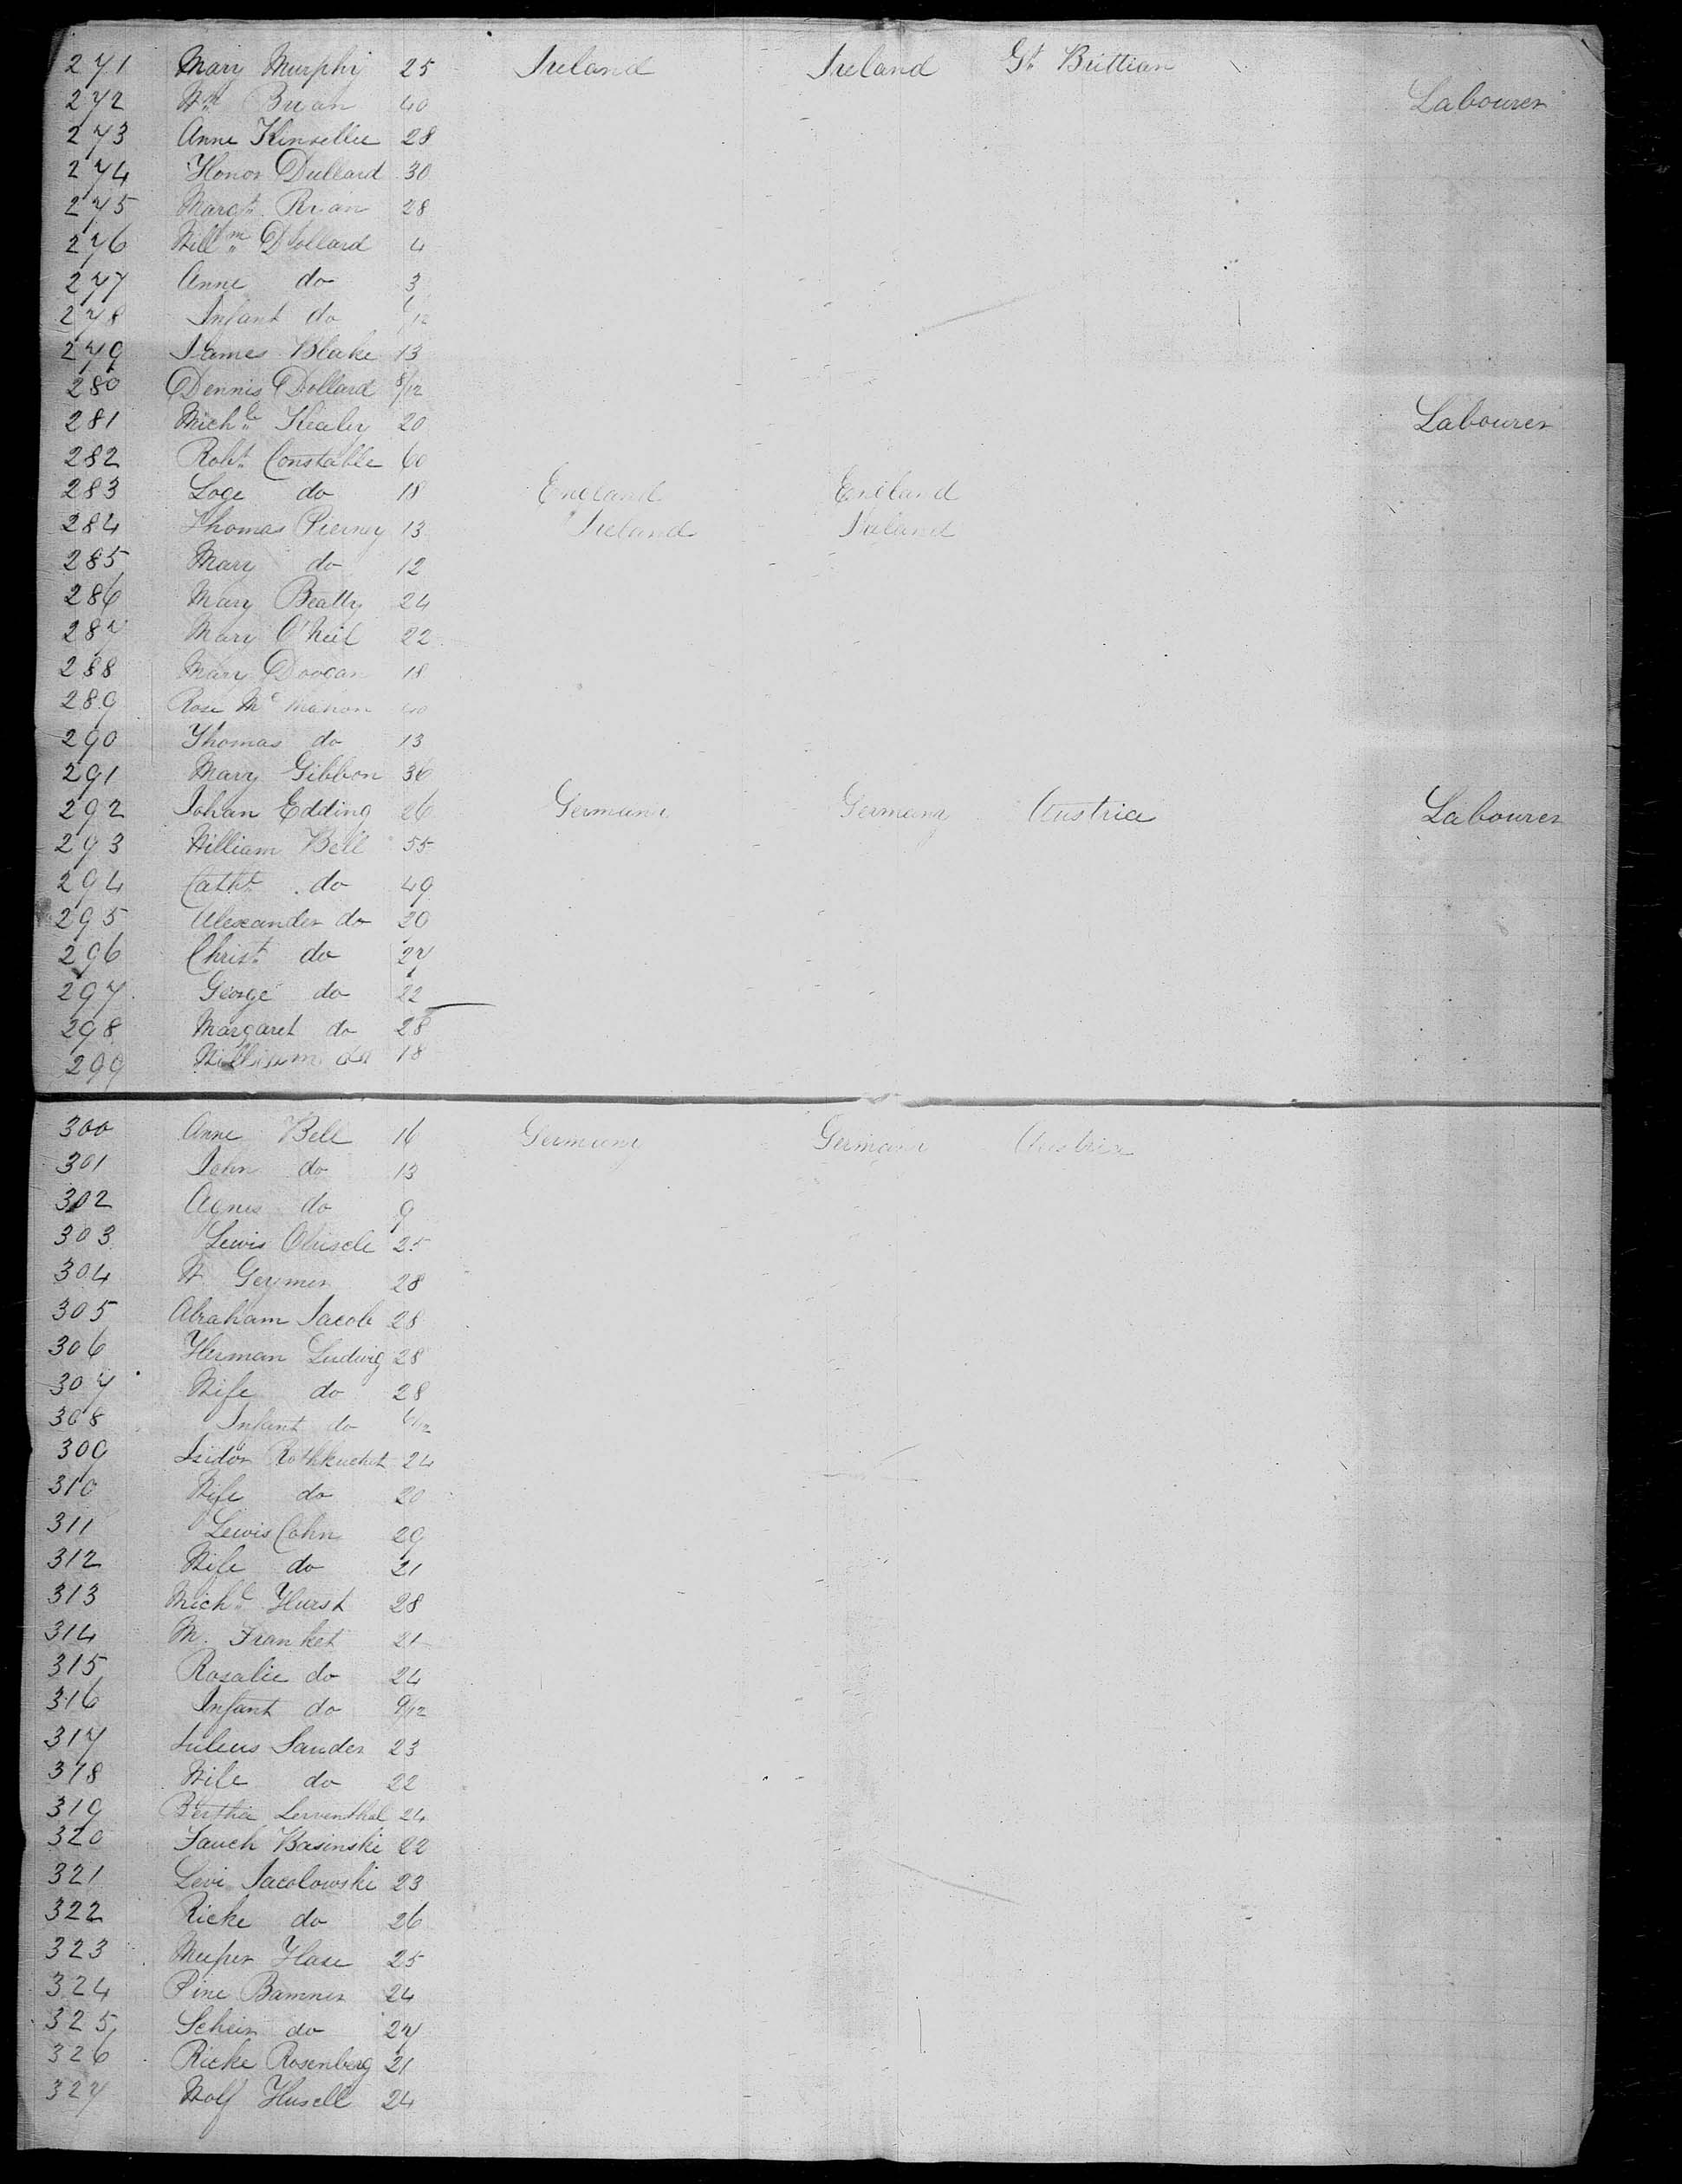 271 Mary Murphy 25 Ireland Ireland Gt Brittian
272 Wm Brian 40 Labourer
273 Anne Kinsellie 28
274 Honor Dullard 30
275 Margt Brian 28
276 Willm Dollard 4
277 Anne do 3
278 Infant do /12
279 James Blake 13
280 Dennis Dollard 8/12
281 Michl Kealey 20 Labourer
282 Robt Constable 60
283 do 18 England England
284 Thomas Pierney 13 Ireland Ireland
285 Mary do 12
286 Mary Beatty 24
287 Mary O'Neil 22
288 Mary Doogan 18
289 Rose McMahon 40
290 Thomas do 13
291 Mary Gibbon 36
292 Johan Edding 26 Germany Germany Austria Labourer
293 William Bell 55
294 Catht do 49
295 Alexander do 20
296 Christ do 27
297 George do 22
298 Margaret do 28
299 William do 18
300 Anne Bell 16 Germany Germany Austria
301 John do 13
302 Agnes do 9
303 Lewis 25
304 W Geymer 28
305 Abraham Jacob 28
306 Herman Ludwig 28
307 Wife do 28
308 Infant do 6/12
309 Isidor 24
310 Wife do 20
311 Lewis Cohn 29
312 Wife do 21
313 Michl Hurst 28
314 M. Franket 21
315 Rosalie do 24
316 Infant do 9/12
317 Juleus Sander 23
318 Wife do 22
319 Bertha Lerventhal 24
320 Basinski 22
321 Levi Jacolowski 23
322 Ricke do 26
323 Hase 25
324 Pine Bamner 24
325 Schein do 27
326 Ricke Rosenberg 21
327 Wolf Husell 24